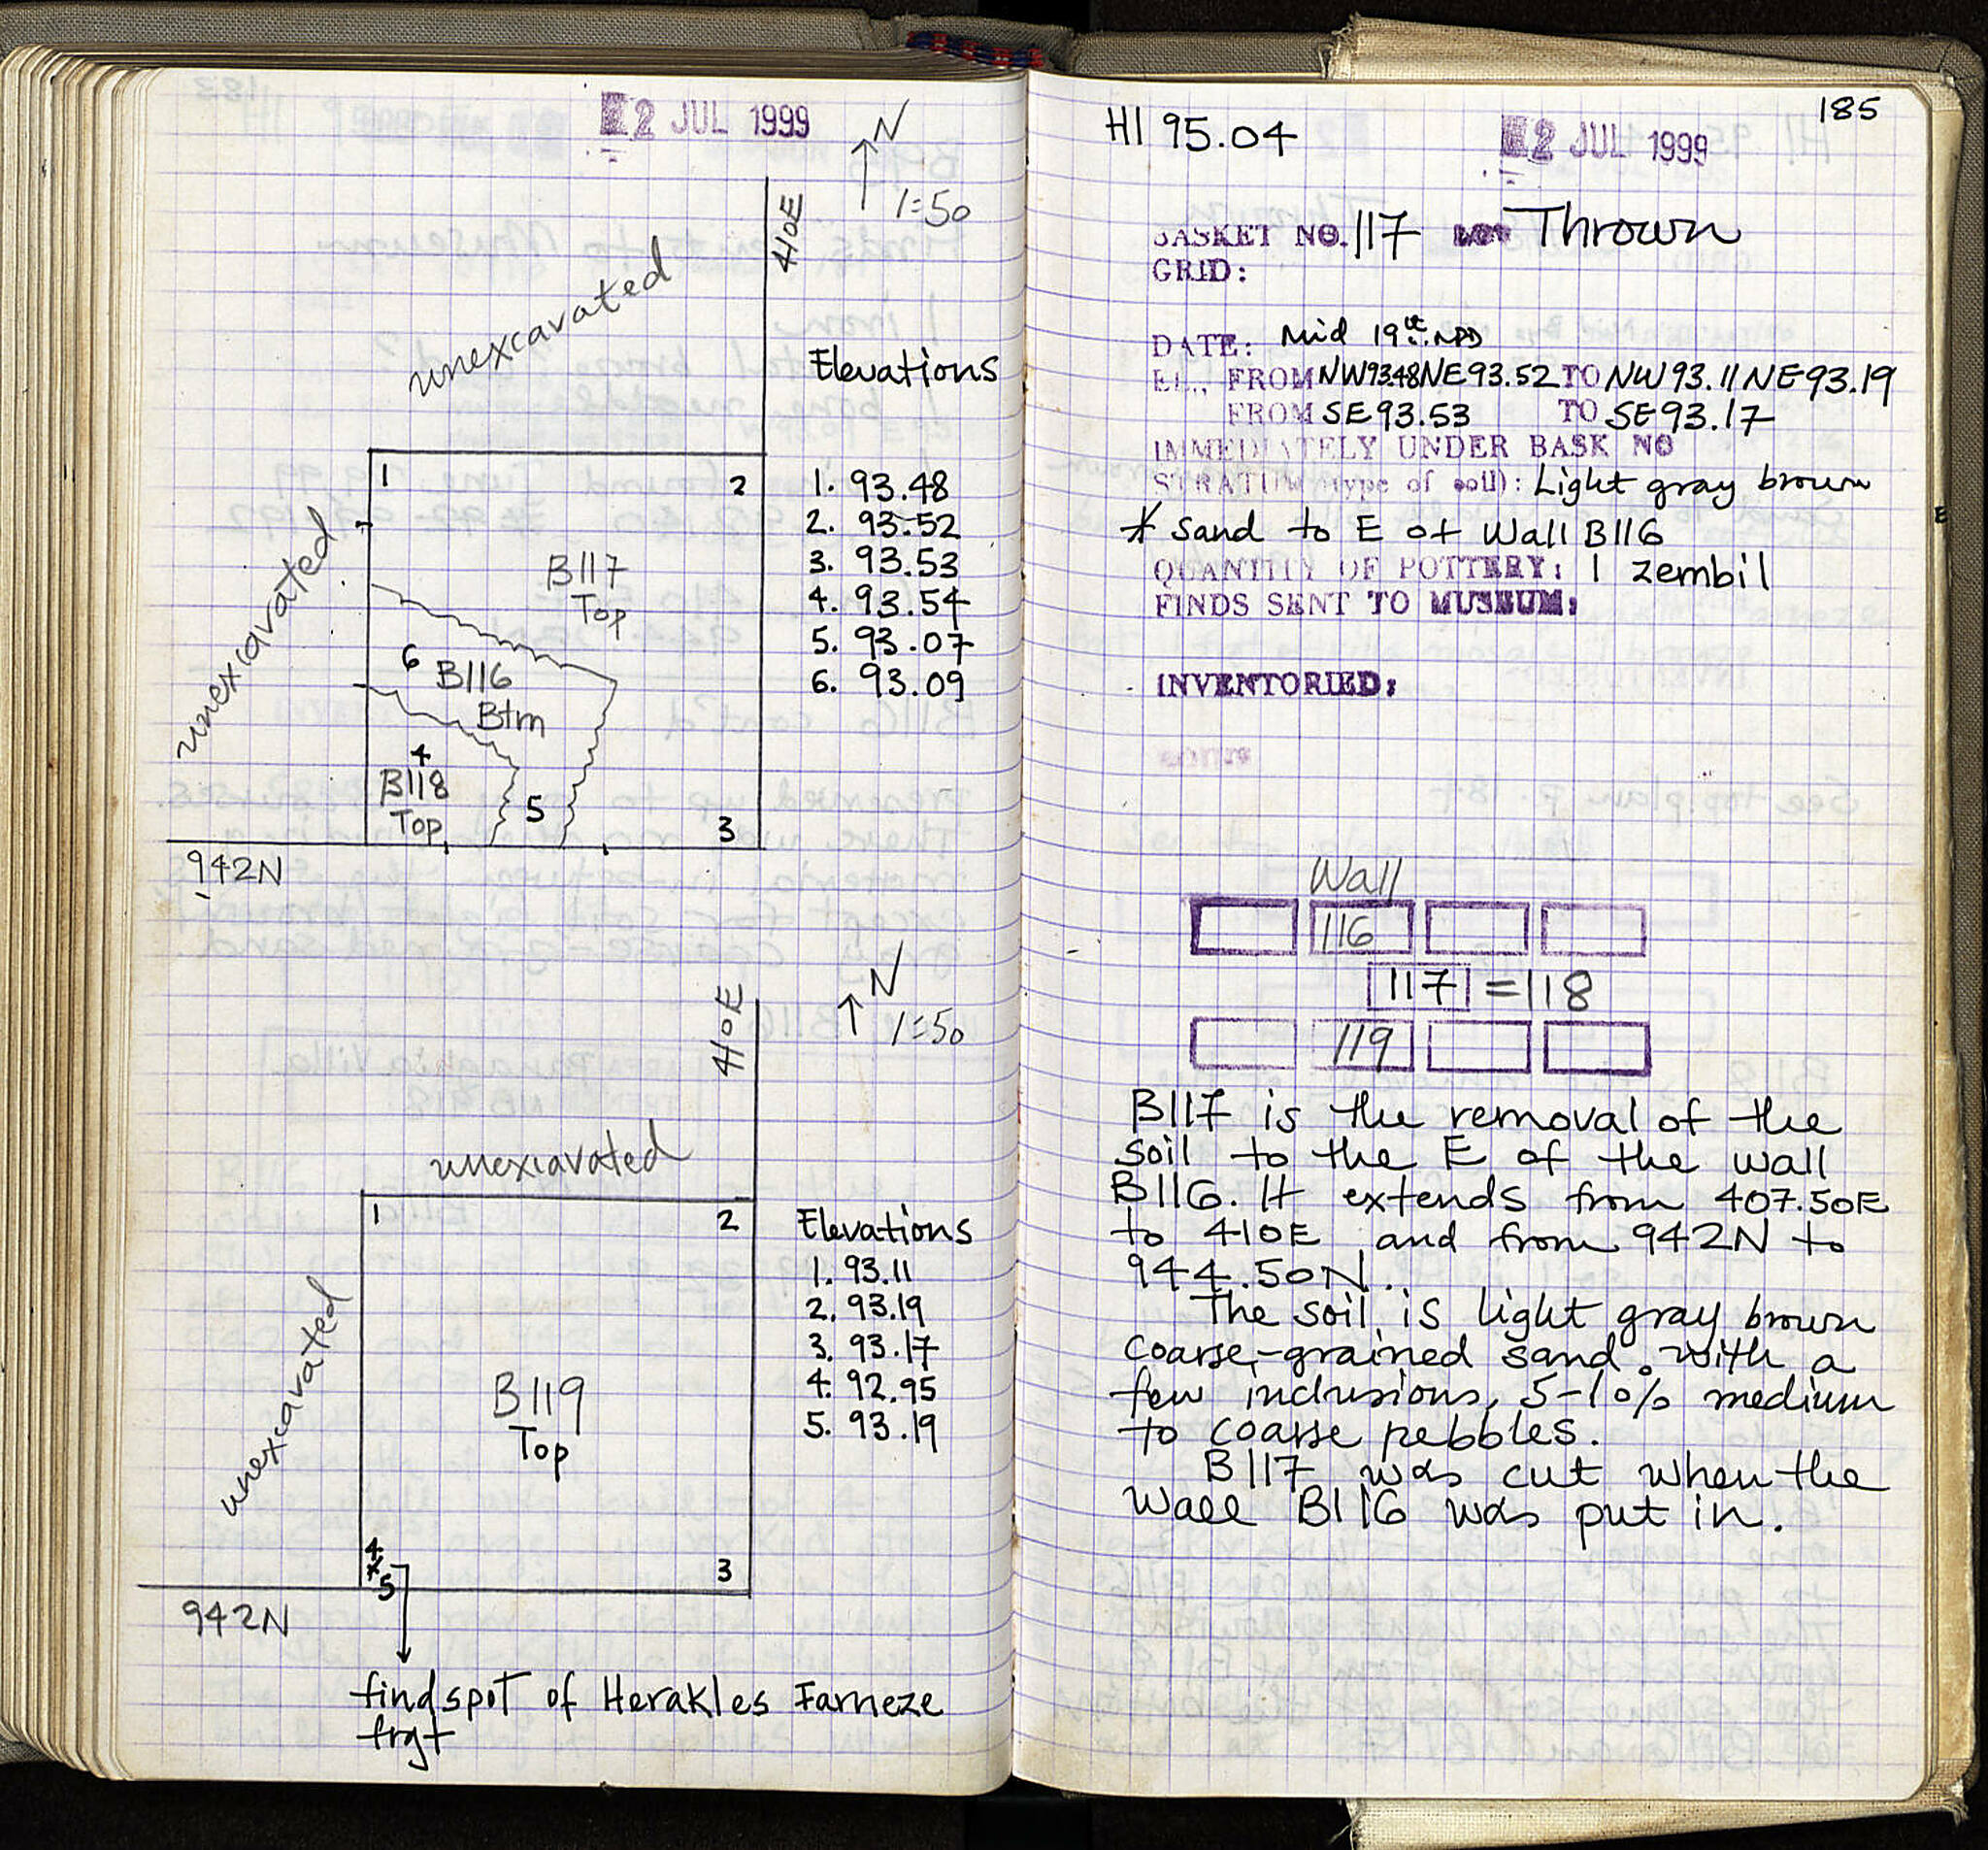 2 JUL 1999
N
1=50
410E
unexcavated
Elevations
1
2
1. 93.48
2. 93.52
3. 93.53
4. 93.54
5. 93.07
6. 93.09
unexcavated
B117
Top
6
B116
Btm
4
B118
Top
5
3
942N
N
1=50
410E
unexcavated
1
2
Elevations
1. 93.11
2. 93.19
3. 93.17
4. 92.95
5. 93.19
unexcavated
B119
Top
4
*
5
3
942N
findspot of Herakles Farneze
frgt
185
HI 95.04
2 JUL 1999
BASKET NO. 117 Thrown
GRID:
DATE: Mid 19th. NPD
EL., FROM NW93.48 NE93.52 TO NW 93.11 NE 93.19
FROM SE 93.53 TO SE 93.17
IMMEDIATELY UNDER BASK NO
STRATUM (type of soil): Light gray brown
* sand to E of Wall B116
QUANTITY OF POTTERY: 1 zembil
FINDS SENT TO MUSEUM:
INVENTORIED:
Wall
116
117 = 118
119
B117 is the removal of the
soil to the E of the wall
B116. It extends from 407.50E
to 410E and from 942N to
944.50N.
The soil is light gray brown
coarse-grained sand with a
few inclusions, 5-10% medium
to coarse pebbles.
B117 was cut when the
wall B116 was put in.